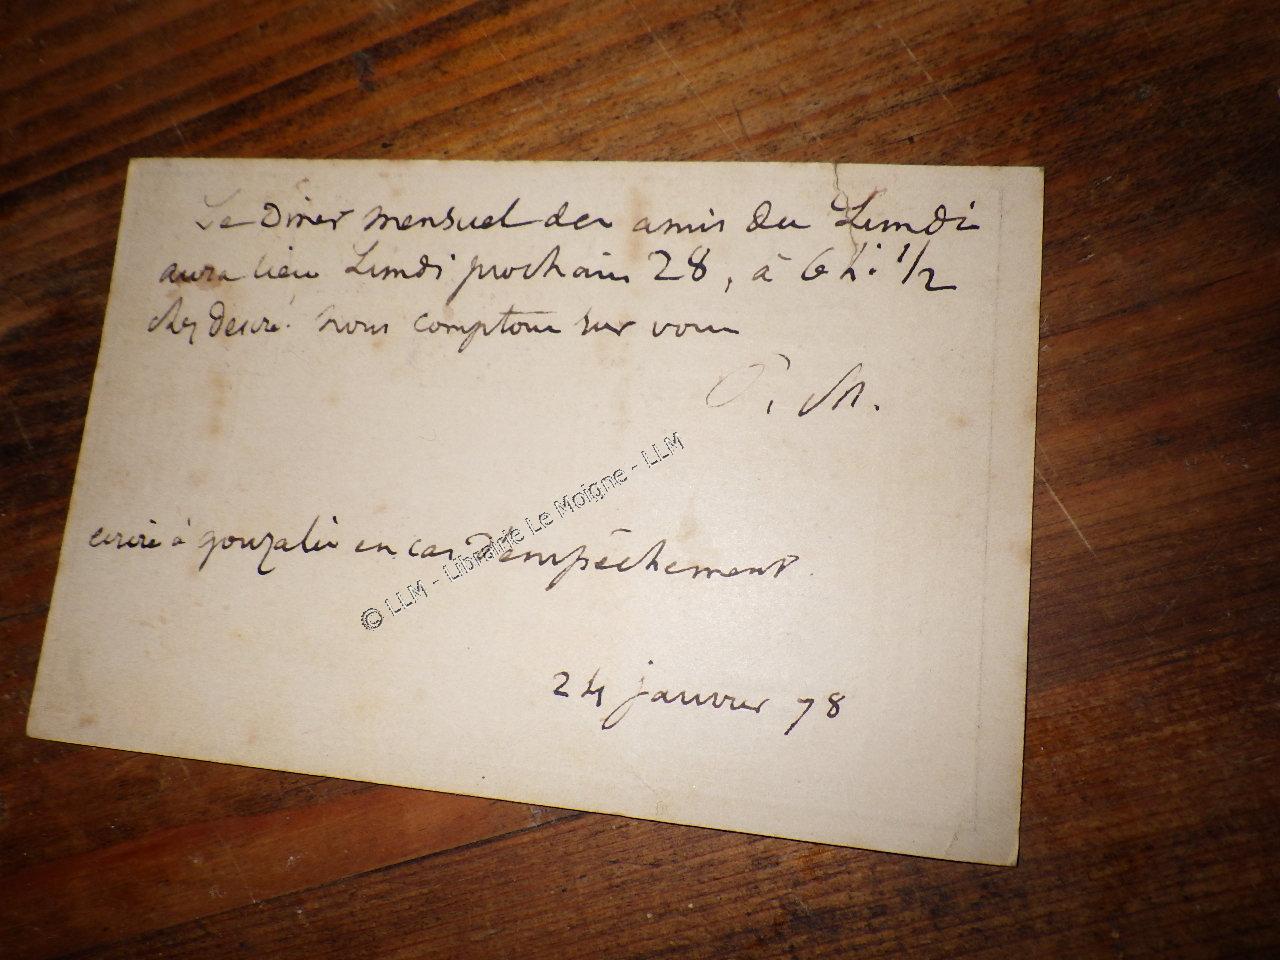 Le Diner mensuel des amis du Lundi
aura lieu Lundi prochain 28, à 6 h. 1/2
chez Désiré. Nous comptons sur vous
P. M.
écrire à gonzalès en cas d'empêchement
24 janvier 78
© LLM - Librairie Le Moigne - LLM